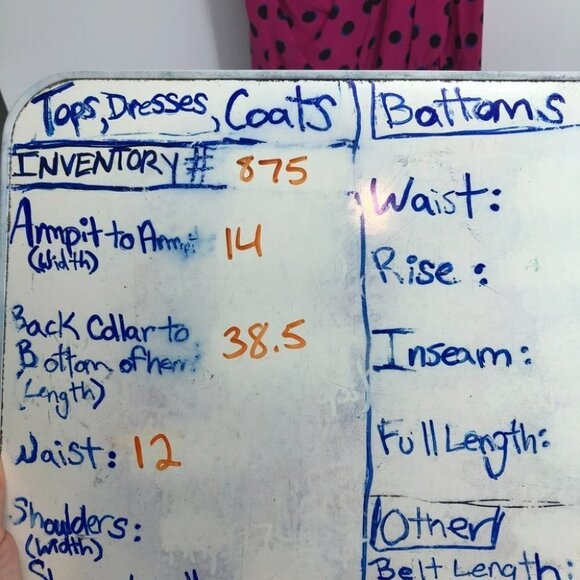 Tops, Dresses, Coats
INVENTORY # 875
Armpit to Armpit: 14
(Width)
Back Collar to
Bottom of hem: 38.5
(Length)
Waist: 12
Shoulders:
(width)
Bottoms
Waist:
Rise:
Inseam:
Full Length:
Other
Belt Length: